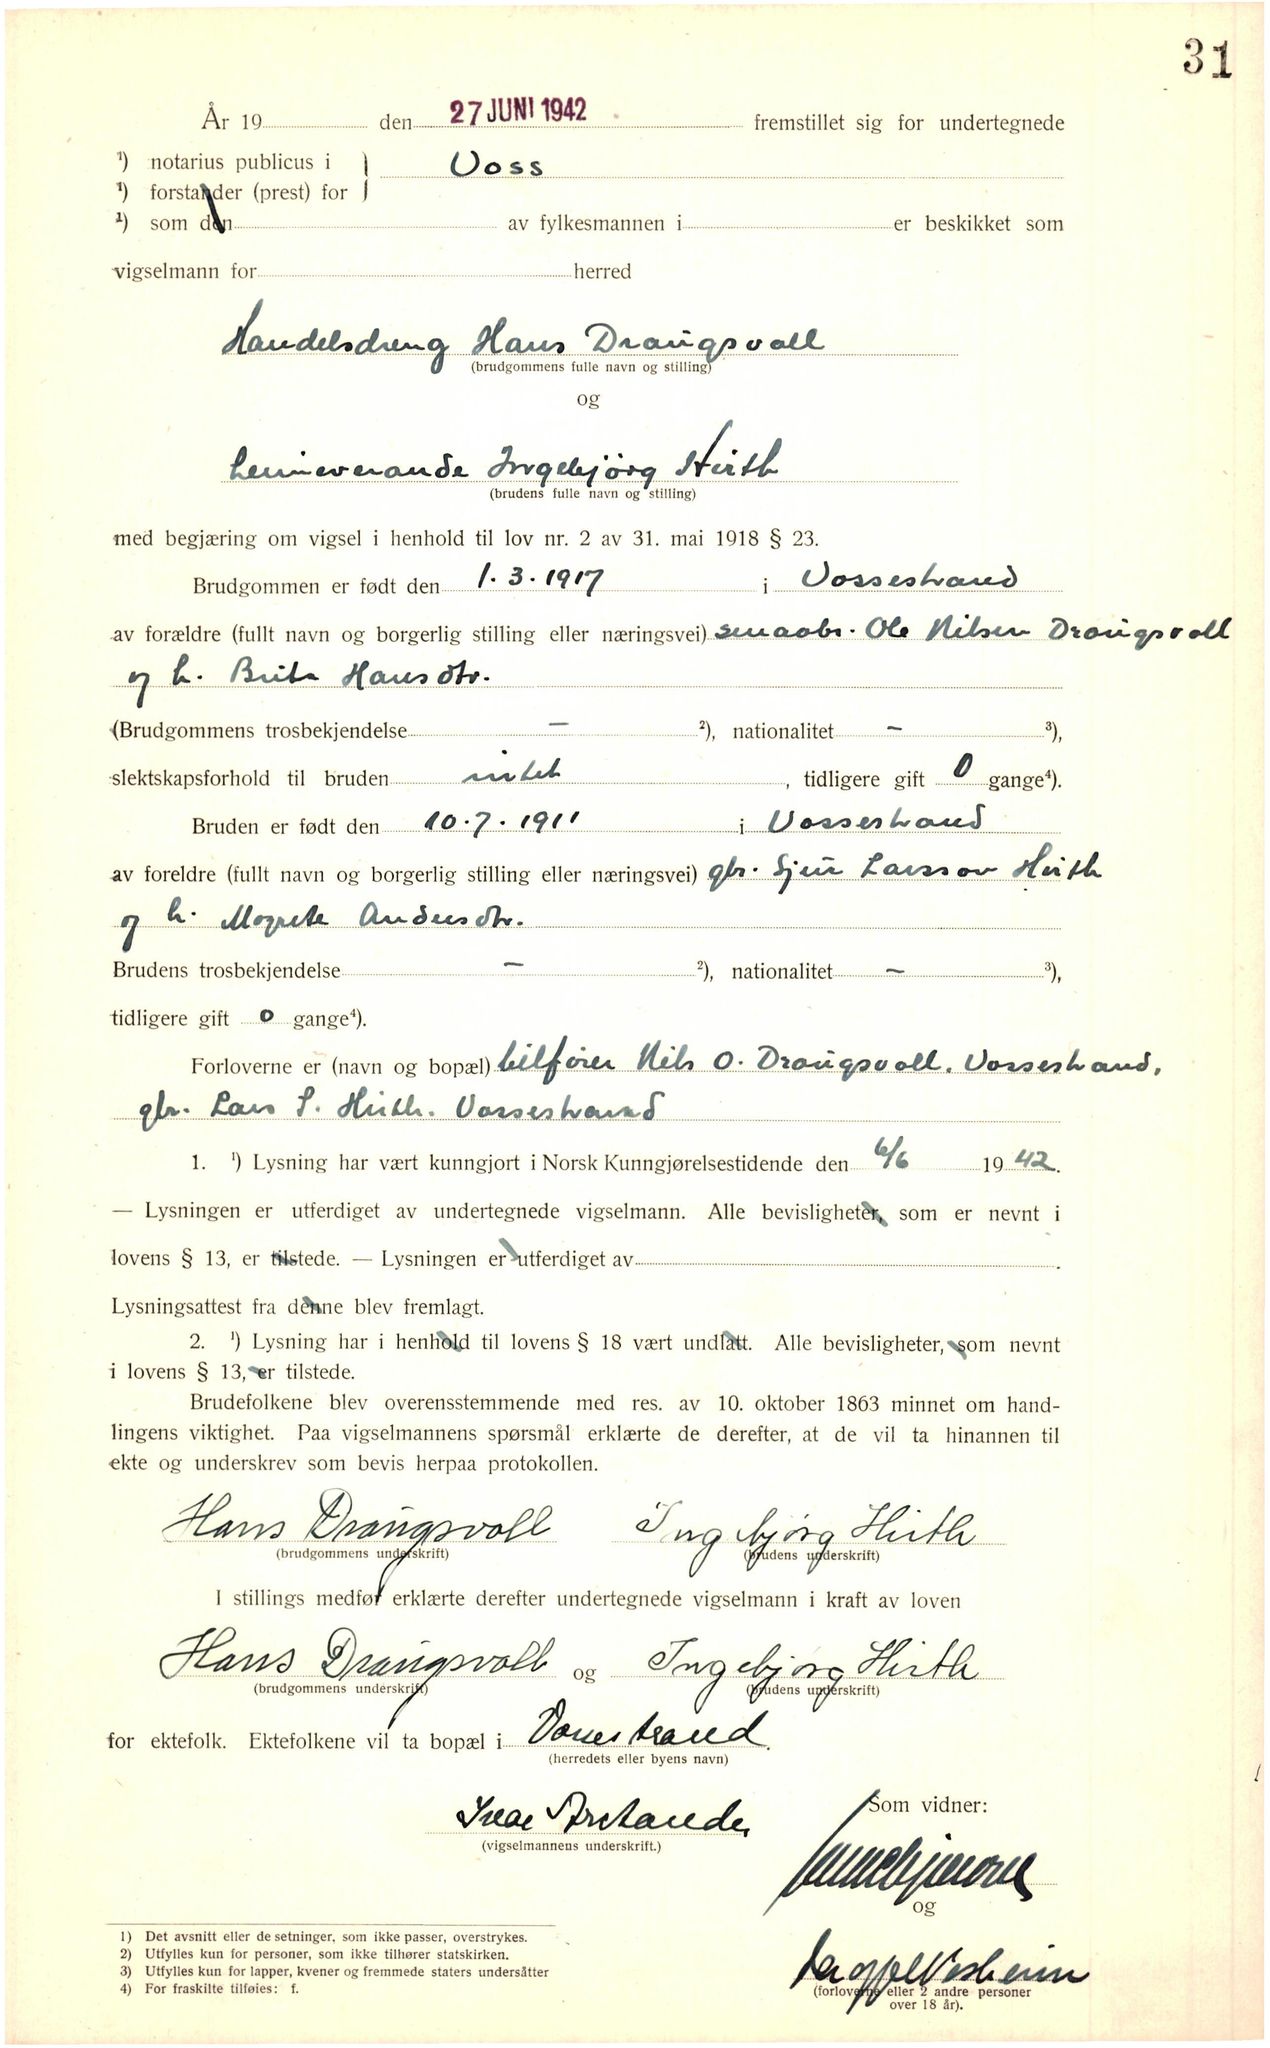 31
År 19 den 27 JUNI 1942 fremstillet sig for undertegnede
¹) notarius publicus i } Voss
¹) forstander (prest) for
¹) som den av fylkesmannen i er beskikket som
vigselmann for herred
Handelsdreng Hans Draugsvoll
(brudgommens fulle navn og stilling)
og
heimeverande Ingebjörg Hirth
(brudens fulle navn og stilling)
med begjæring om vigsel i henhold til lov nr. 2 av 31. mai 1918 § 23.
Brudgommen er født den 1.3.1917 i Vossestrand
av forældre (fullt navn og borgerlig stilling eller næringsvei) smaabr. Ole Nilsen Draugsvoll
og h. Brita Hansdtr.
(Brudgommens trosbekjendelse – ²), nationalitet – ³),
slektskapsforhold til bruden intet, tidligere gift 0 gange⁴).
Bruden er født den 10.7.1911 i Vossestrand
av foreldre (fullt navn og borgerlig stilling eller næringsvei) gbr. Sjur Larsson Hirth
og h. Magrete Andersdtr.
Brudens trosbekjendelse – ²), nationalitet – ³),
tidligere gift 0 gange⁴).
Forloverne er (navn og bopæl) bilfører Nils O. Draugsvoll, Vossestrand,
gbr. Lars S. Hirth. Vossestrand
1. ¹) Lysning har vært kunngjort i Norsk Kunngjørelsestidende den 6/6 19 42.
— Lysningen er utferdiget av undertegnede vigselmann. Alle bevisligheter, som er nevnt i
lovens § 13, er tilstede. — Lysningen er utferdiget av .
Lysningsattest fra denne blev fremlagt.
2. ¹) Lysning har i henhold til lovens § 18 vært undlatt. Alle bevisligheter, som nevnt
i lovens § 13, er tilstede.
Brudefolkene blev overensstemmende med res. av 10. oktober 1863 minnet om hand-
lingens viktighet. Paa vigselmannens spørsmål erklærte de derefter, at de vil ta hinannen til
ekte og underskrev som bevis herpaa protokollen.
Hans Draugsvoll Ingebjørg Hirth
(brudgommens underskrift) (brudens underskrift)
I stillings medfør erklærte derefter undertegnede vigselmann i kraft av loven
Hans Draugsvoll og Ingebjørg Hirth
(brudgommens underskrift) (brudens underskrift)
for ektefolk. Ektefolkene vil ta bopæl i Vossestrand.
(herredets eller byens navn)
Som vidner:
Ivar
(vigselmannens underskrift.)
og
1) Det avsnitt eller de setninger, som ikke passer, overstrykes.
2) Utfylles kun for personer, som ikke tilhører statskirken.
3) Utfylles kun for lapper, kvener og fremmede staters undersåtter
4) For fraskilte tilføies: f.
(forloverne eller 2 andre personer
over 18 år).